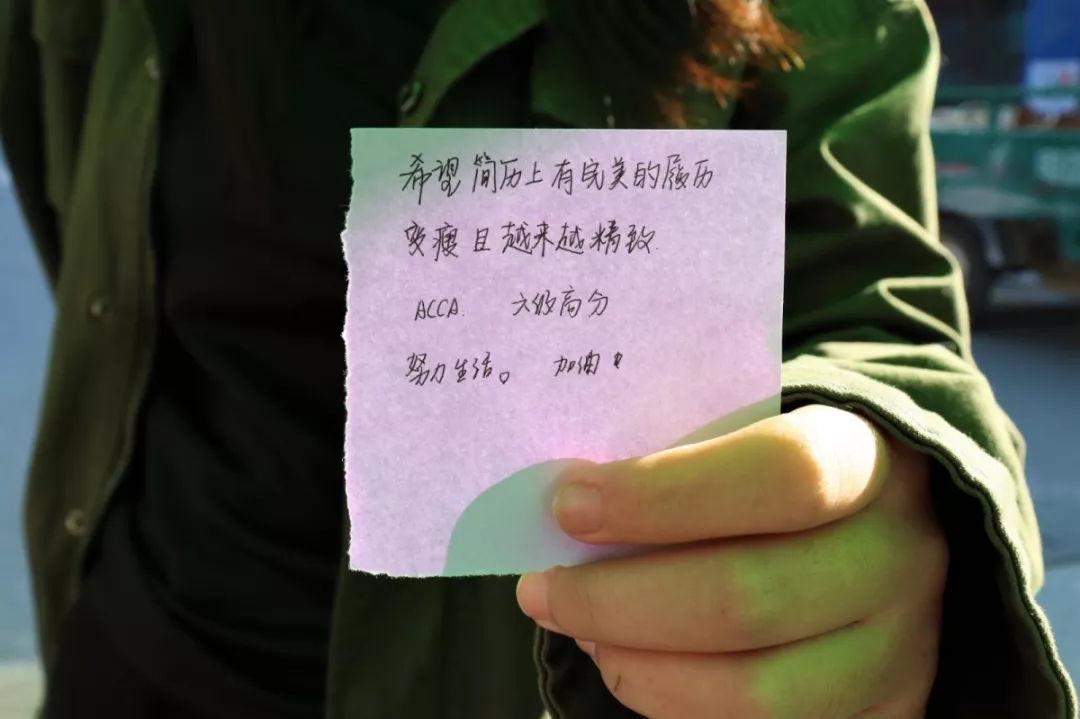 希望简历上有完美的履历
变瘦且越来越精致
ACCA. 六级高分
努力生活。 加油!